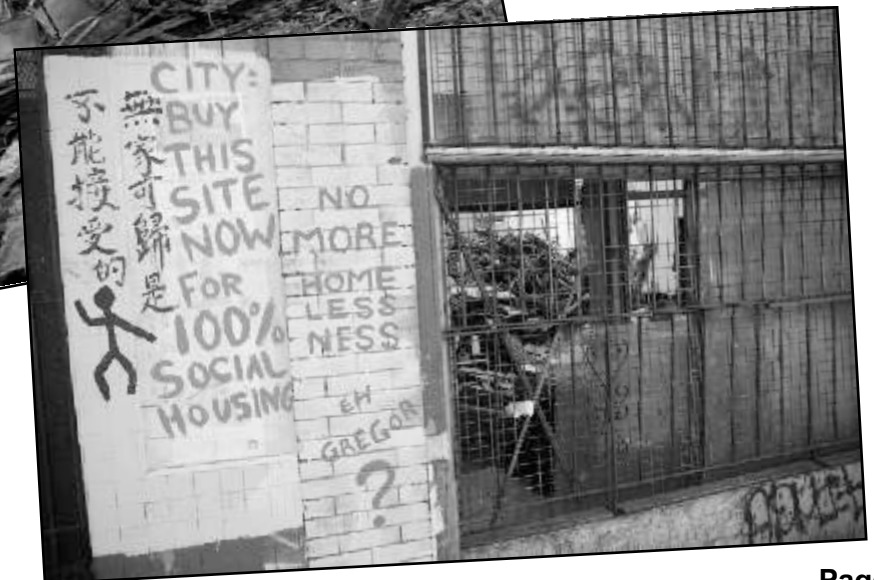 無家可歸是
不能接受的
CITY:
BUY
THIS
SITE
NOW
FOR
100%
SOCIAL
HOUSING
NO
MORE
HOME
LESS
NESS
EH
GREGOR
?